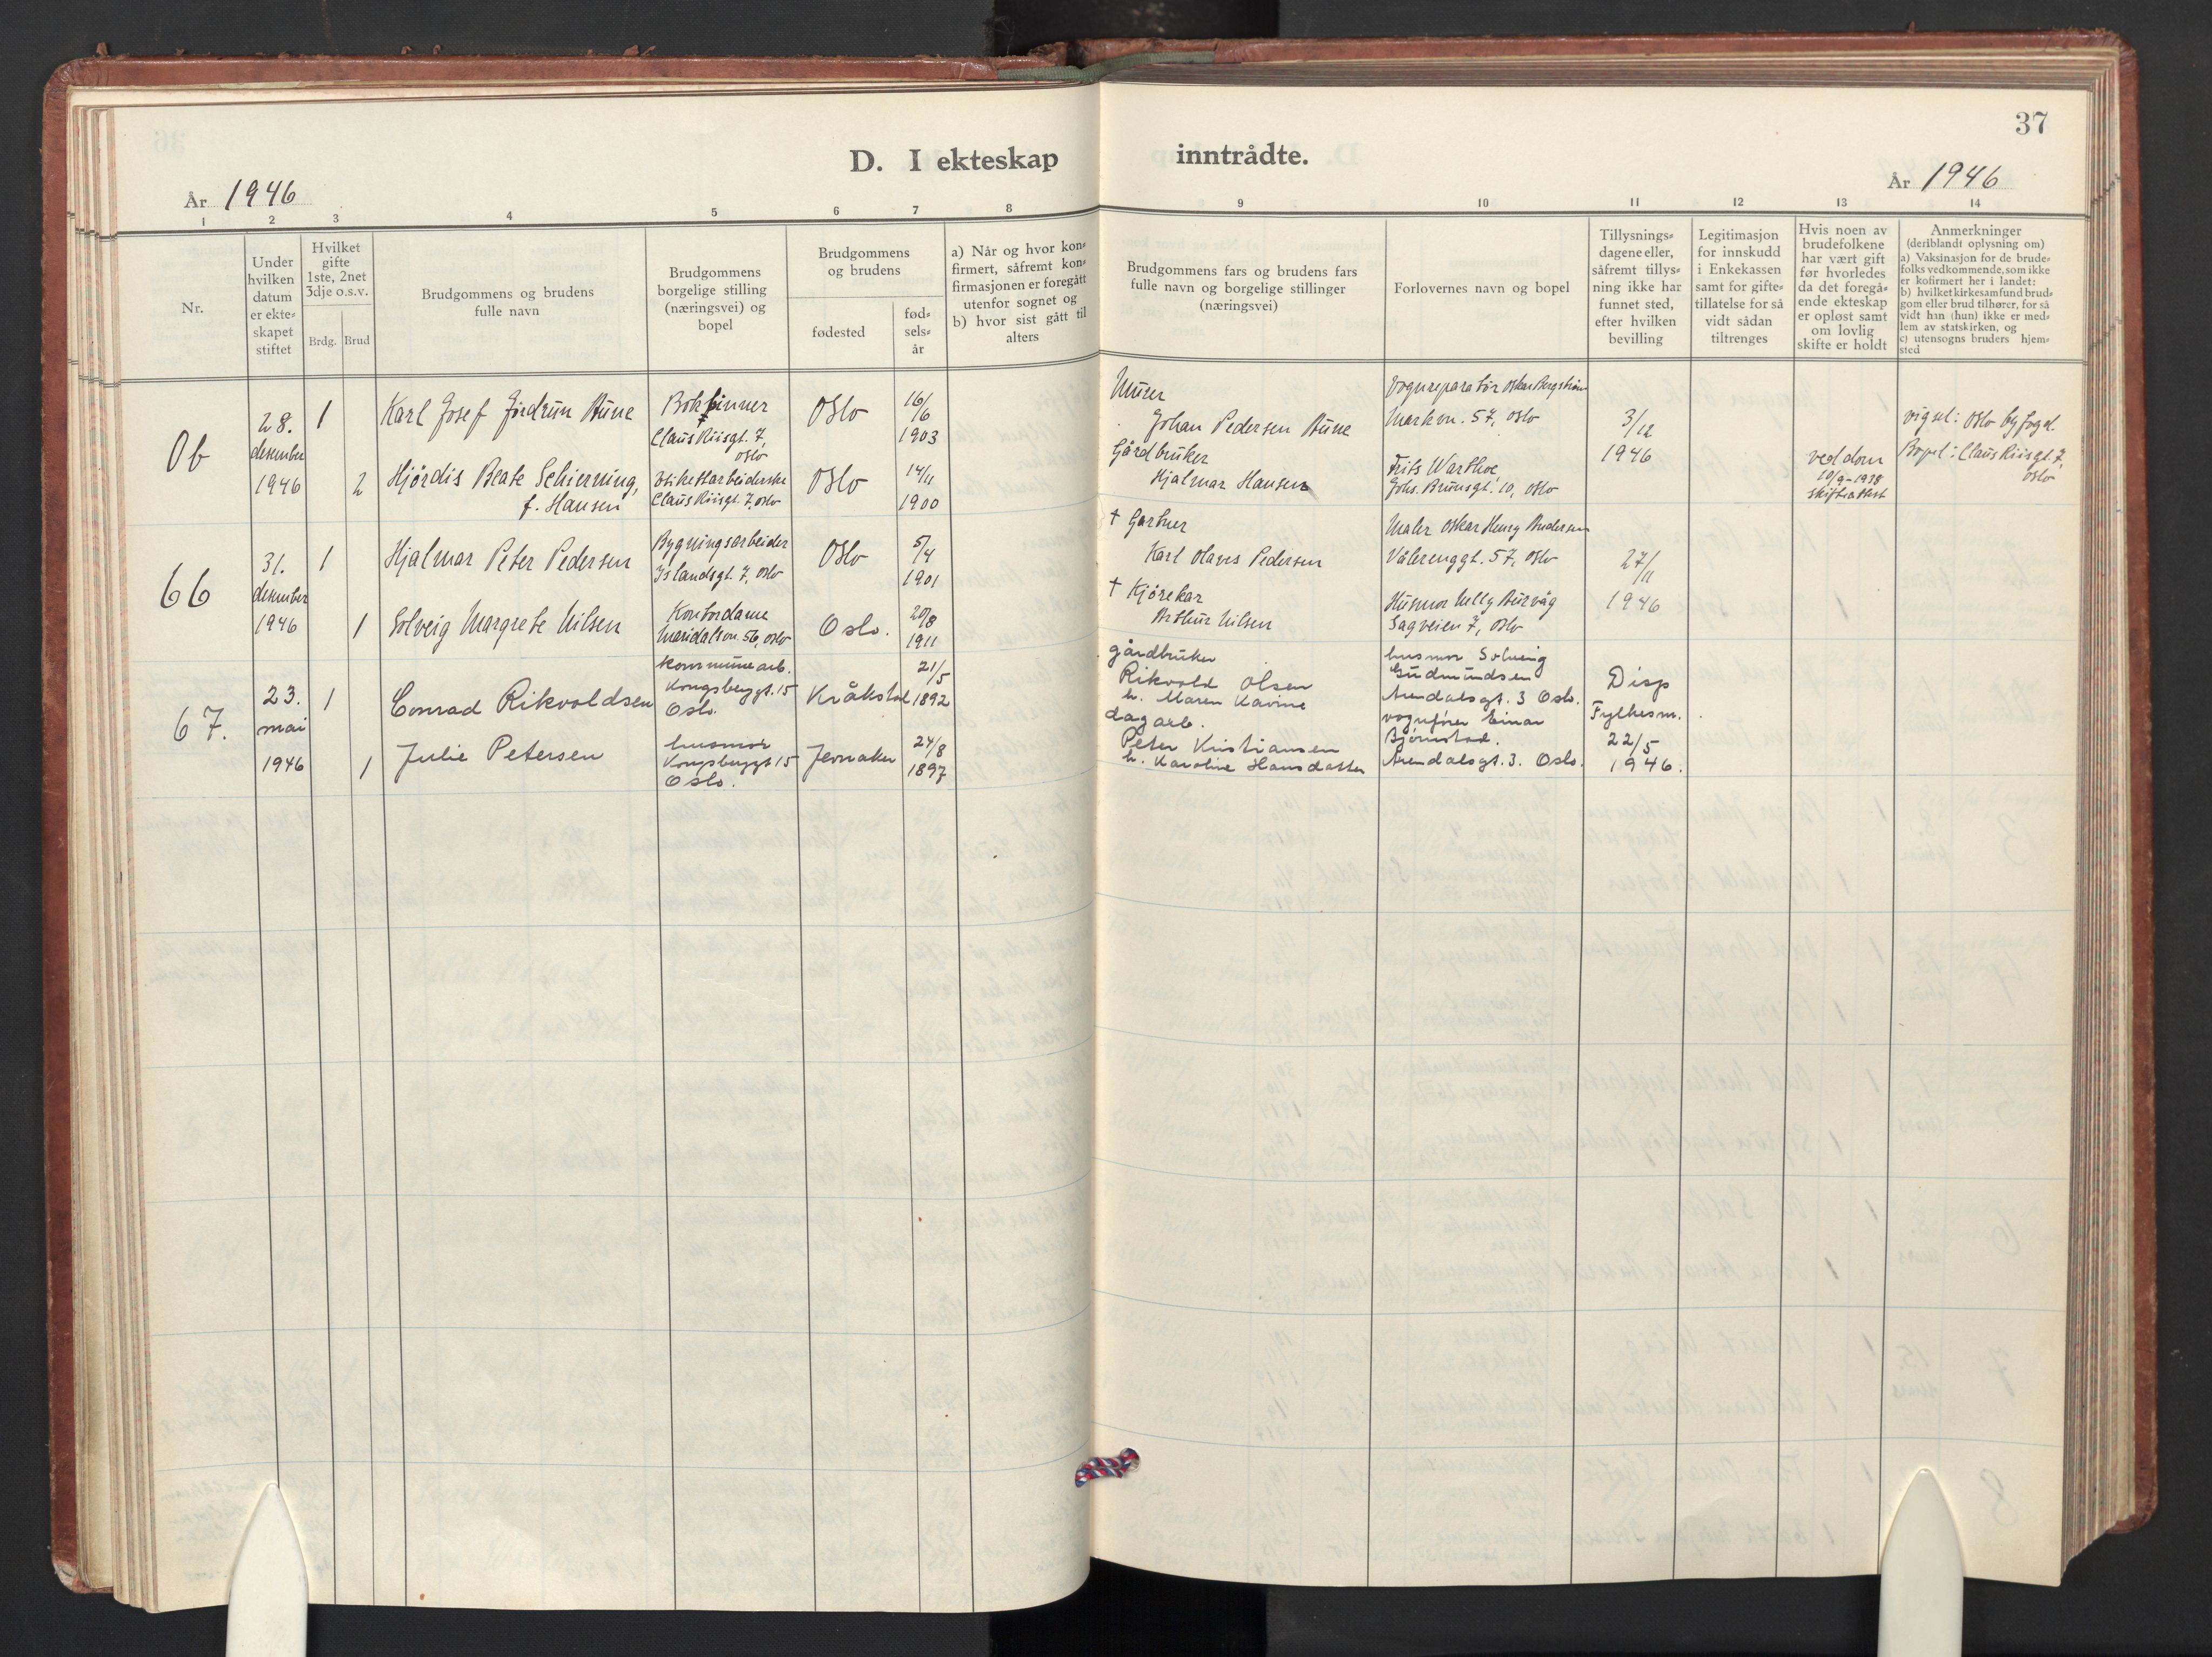 37
D. I ekteskap inntrådte.
År 1946
År 1946
1 2 3 4 5 6 7 8 9 10 11 12 13 14
Nr.
Under
hvilken
datum
er ekte-
skapet
stiftet
Hvilket
gifte
1ste, 2net
3dje o.s.v.
Brdg. Brud
Brudgommens og brudens
fulle navn
Brudgommens
borgelige stilling
(næringsvei) og
bopel
Brudgommens
og brudens
fødested
fød-
sels-
år
a) Når og hvor kon-
firmert, såfremt kon-
firmasjonen er foregått
utenfor sognet og
b) hvor sist gått til
alters
Brudgommens fars og brudens fars
fulle navn og borgelige stillinger
(næringsvei)
Forlovernes navn og bopel
Tillysnings-
dagene eller,
såfremt tillys-
ning ikke har
funnet sted,
efter hvilken
bevilling
Legitimasjon
for innskudd
i Enkekassen
samt for gifte-
tillatelse for så
vidt sådan
tiltrenges
Hvis noen av
brudefolkene
har vært gift
før hvorledes
da det foregå-
ende ekteskap
er opløst samt
om lovlig
skifte er holdt
Anmerkninger
(deriblandt oplysning om)
a) Vaksinasjon for de brude-
folks vedkommende, som ikke
er kofirmert her i landet:
b) hvilket kirkesamfund brud-
gom eller brud tilhører, for så
vidt han (hun) ikke er med-
lem av statskirken, og
c) utensogns bruders hjem-
sted
Ob
28.
desember
1946
1
Karl Josef Hune
Bokbinner
Claus Riisgt. 7,
Oslo
Oslo
16/6
1903
Murer
Johan Pedersen Hune
Vognreparatør Oskar Bergstrøm
Markvn. 57, Oslo
3/12
1946
vigsel: Oslo byfogd.
Bopel: Claus Riisgt. 7,
Oslo
2
Hjørdis Beate Schierning,
f. Hansen
Etikettarbeiderske
Claus Riisgt. 7, Oslo
Oslo
14/11
1900
Gårdbruker
Hjalmar Hansen
Frits Warthoe
Johs. Brunsgt. 10, Oslo
ved dom
10/9-1938
66
31.
desember
1946
1
Hjalmar Peter Pedersen
Bygningsarbeider
Islandsgt. 7, Oslo
Oslo
5/4
1901
† Gartner
Karl Olaves Pedersen
Maler Oskar Henry Andersen
Vålerenggt. 57, Oslo
27/11
1946
1
Solveig Margrete Nilsen
Kontordame
Maridalsvn. 56, Oslo
Oslo.
20/8
1911
† Kjørekar
Arthur Nilsen
Husmor Nelly Aurvåg
Sagveien 7, Oslo
67.
23.
mai
1946
1
Conrad Rikvoldsen
kommunearb.
Kongsberggt. 15
Oslo.
Kråkstad
21/5
1892
gårdbruker
Rikvold Olsen
h. Maren Karine
husmor Solveig
Gudmundsen
Arendalsgt. 3 Oslo.
Disp
Fylkesm.
22/5
1946.
1
Julie Petersen
husmor
Kongsberggt 15
Oslo.
Jevnaker
24/8
1897
dagarb.
Peter Kristiansen
h. Karoline Hansdatter
vognfører Einar
Bjørnstad.
Arendalsgt. 3. Oslo.